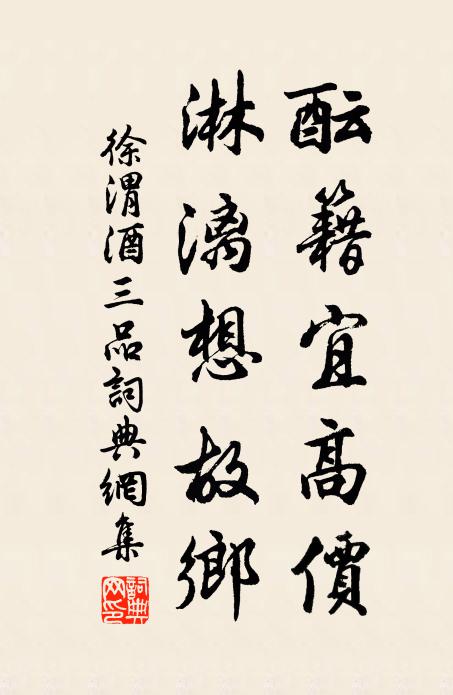 酝籍宜高價
淋漓想故鄉
徐渭酒三品詞典網集
詞典網印